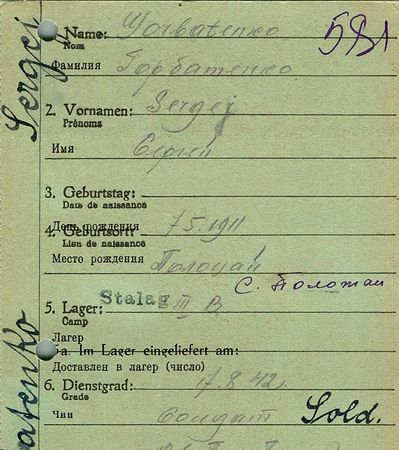 Name: Gorbatenko
Nom
Фамилия Горбатенко
591
2. Vornamen: Sergej
Prénoms
Имя Сергей
3. Geburtstag:
Date de naissance
День рождения 7.5.1911
4. Geburtsort:
Lieu de naissance
Место рождения
С. Положаи
5. Lager: Stalag III B
Camp
Лагер
5a. Im Lager eingeliefert am:
Доставлен в лагер (число)
6. Dienstgrad: 17.8.42.
Grade
Чин Солдат Sold.
Sergej